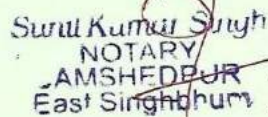 Sunil Kumar Singh
NOTARY
AMSHEDPUR
East Singhbhum